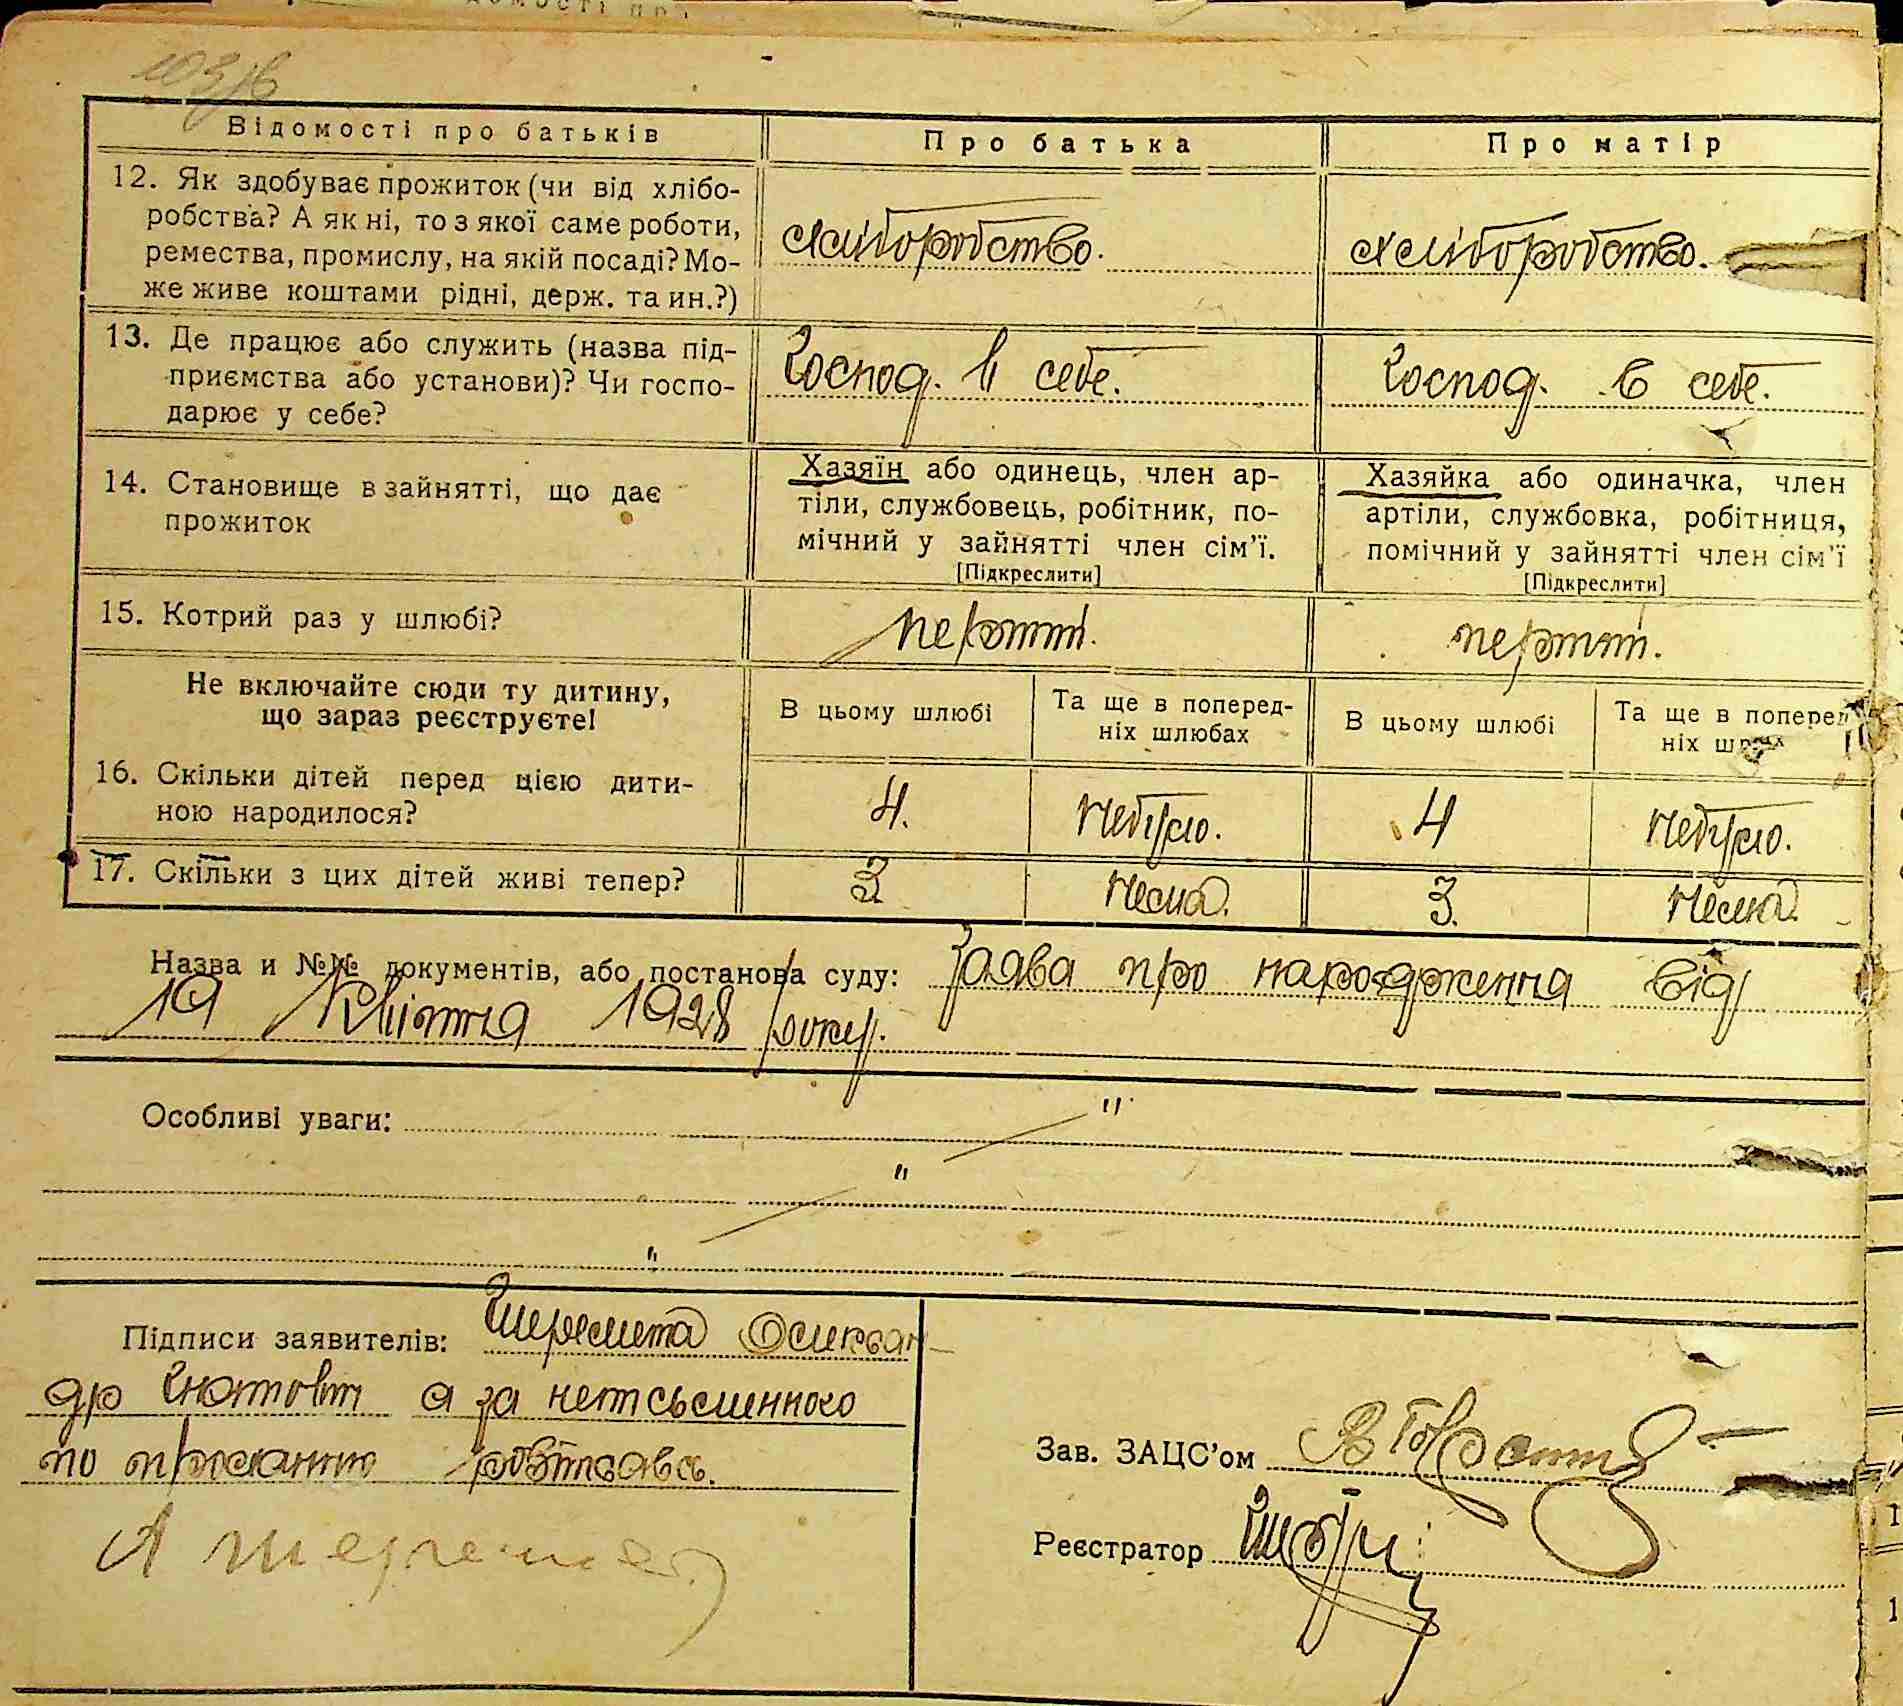 Відомості про батьків
Про батька
Про матір
12. Як здобуває прожиток (чи від хлібо-
робства? А як ні, то з якої саме роботи,
ремества, промислу, на якій посаді? Мо-
же живе коштами рідні, держ. та ин.?)
хліборобство.
хліборобство.
13. Де працює або служить (назва під-
приємства або установи)? Чи госпо-
дарює у себе?
Господ. в себе.
Господ. в себе.
14. Становище в зайнятті, що дає
прожиток
Хазяїн або одинець, член ар-
тіли, службовець, робітник, по-
мічний у зайнятті член сім'ї.
[Підкреслити]
Хазяйка або одиначка, член
артіли, службовка, робітниця,
помічний у зайнятті член сім'ї
[Підкреслити]
15. Котрий раз у шлюбі?
перший.
перший.
Не включайте сюди ту дитину,
що зараз реєструєте!
В цьому шлюбі
Та ще в поперед-
ніх шлюбах
В цьому шлюбі
Та ще в поперед
ніх
16. Скільки дітей перед цією дити-
ною народилося?
4.
небуло.
4
небуло.
17. Скільки з цих дітей живі тепер?
3
нема.
3.
нема.
Назва и №№ документів, або постанова суду: Заява про народження від
19 Квітня 1928 року.
Особливі уваги:
Підписи заявителів: Шеремета Олексан-
др а за неписьменного
по проханню
Зав. ЗАЦС'ом
Реєстратор